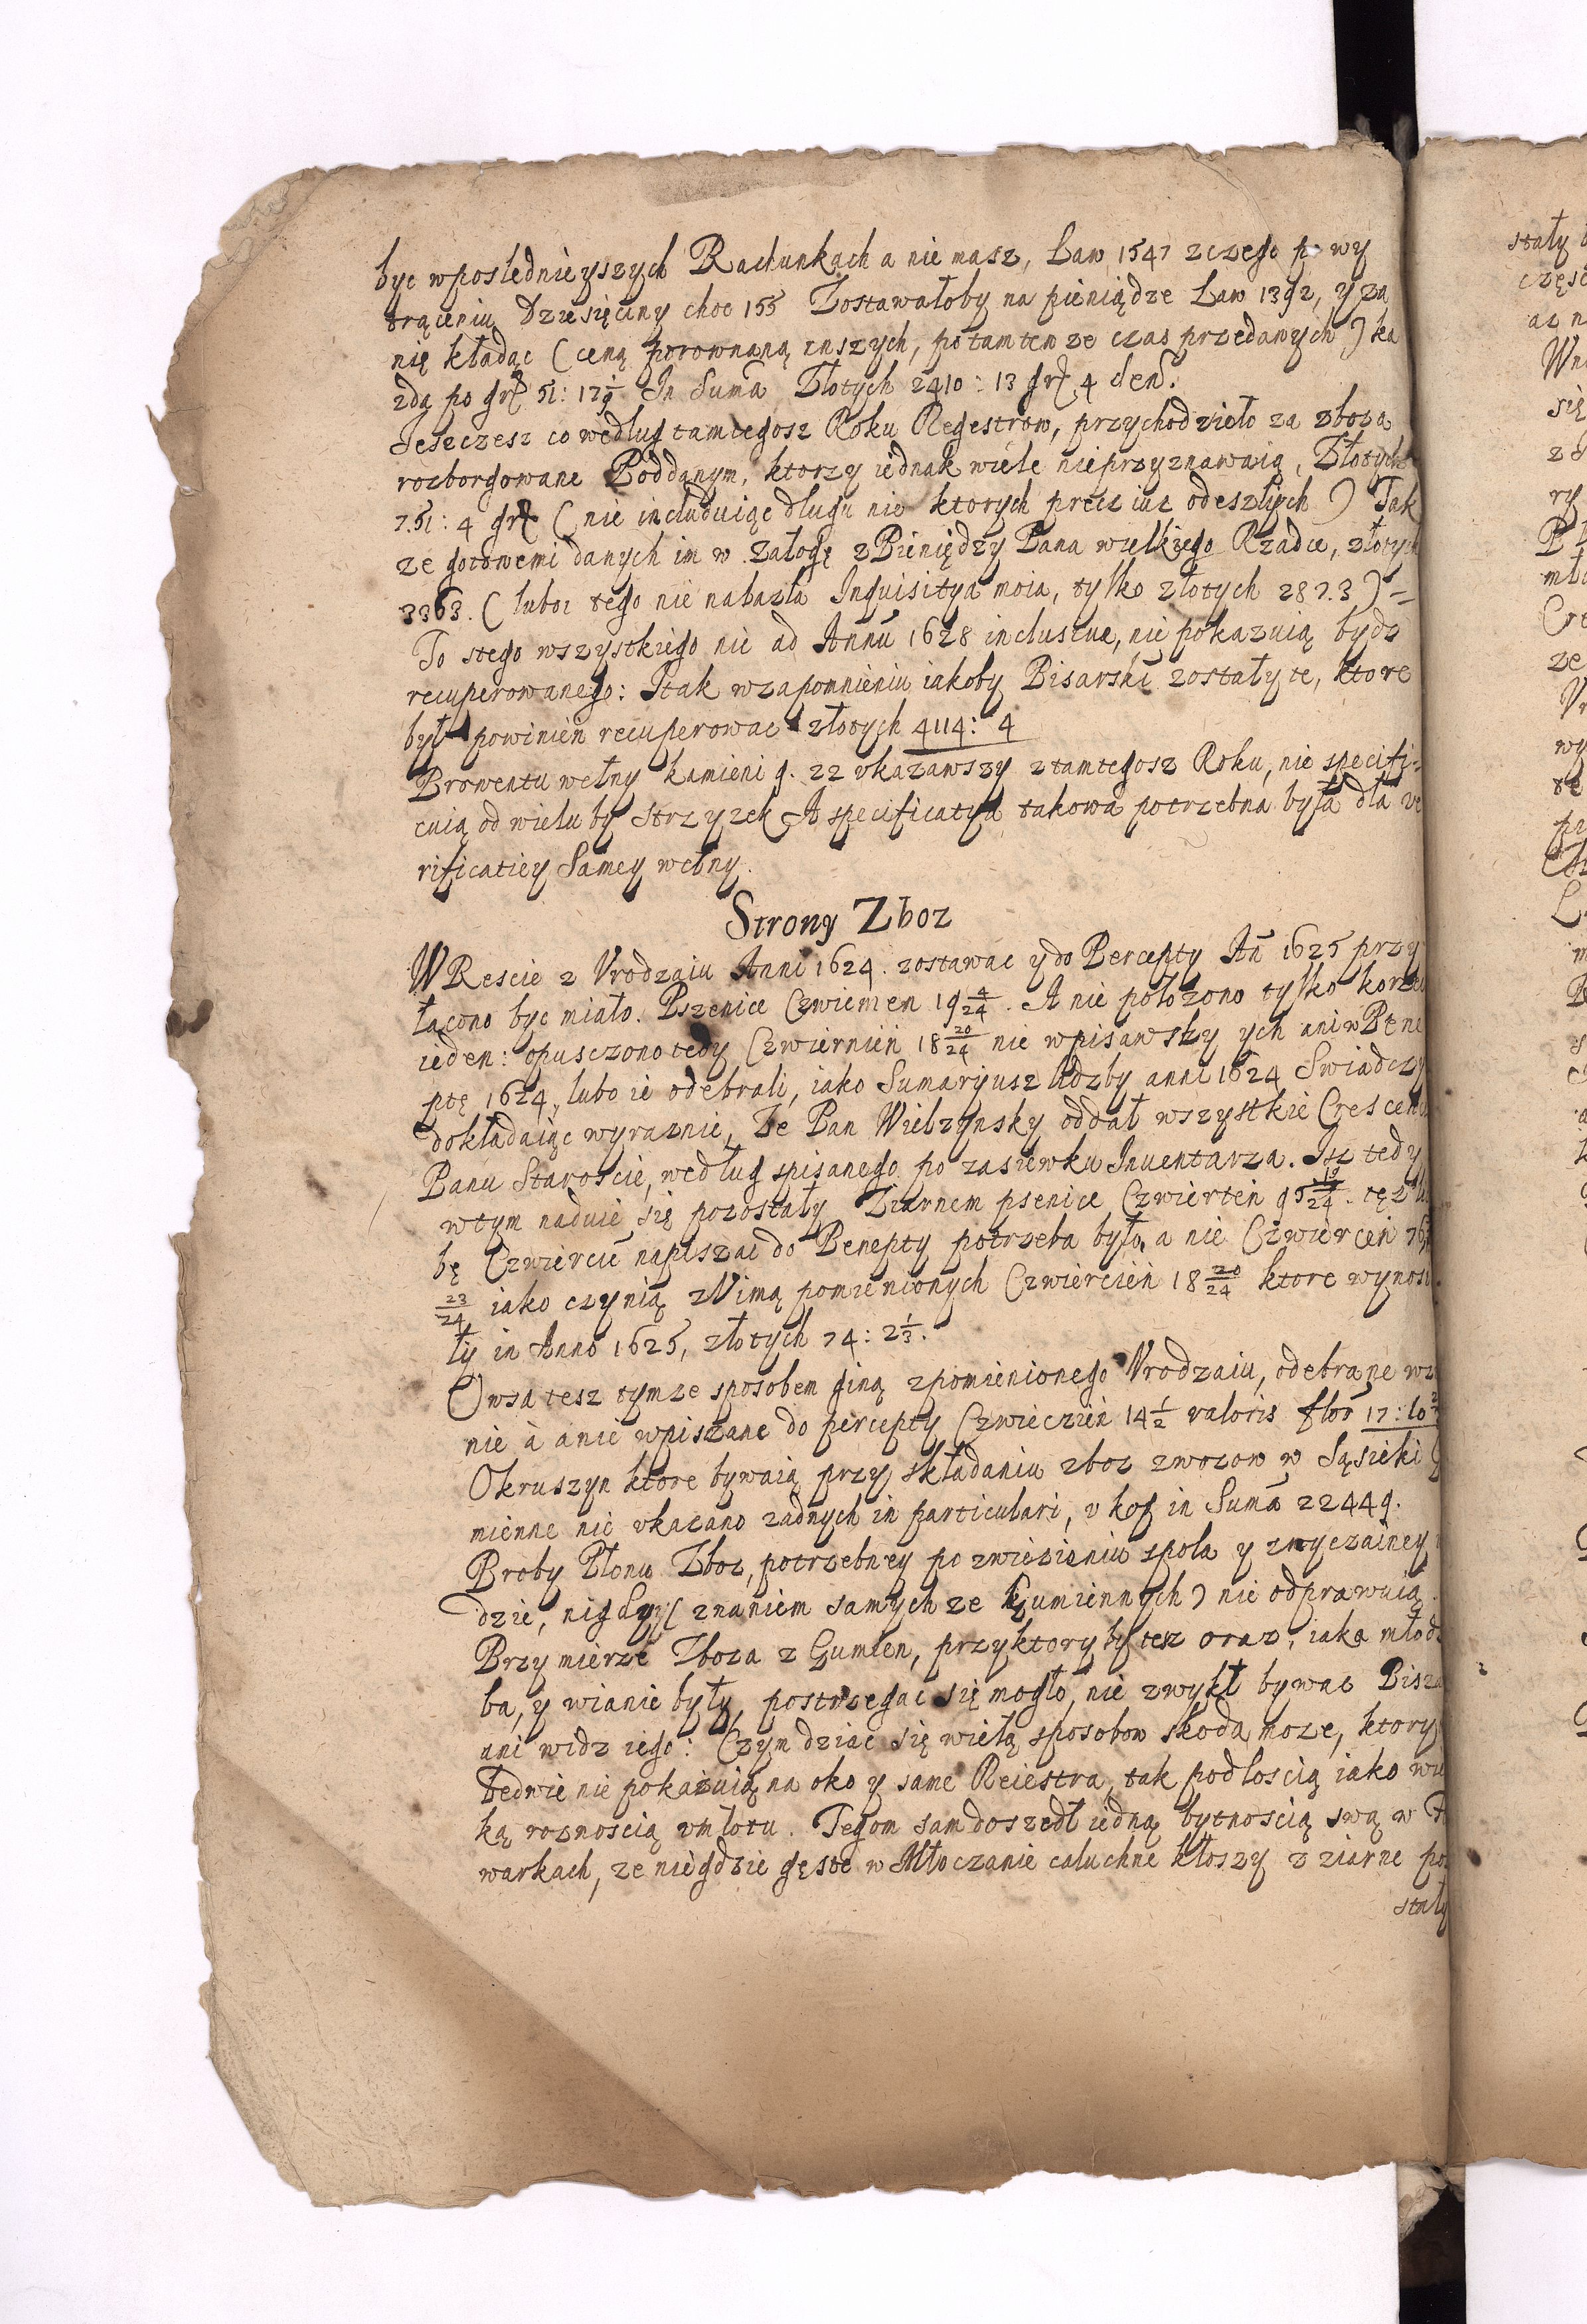 byc wposlednieyszych Rachunkach a nie masz, Law 1547 zczego po wy
trąceniu Dziesięciny choc 155 Zostawałoby na pieniądze Law 1392, y za
nię kładąc (ceną porownaną inszych, po tamten ze czas przedanych) ka
zdą po gr 51: 12 In Suma Złotych 2410: 13 gr 4 den.
Jeszczesz co według tamtegosz Roku Regestrow, przychodzieło za zboza
rozborgowane Poddanym, ktorzy iednak wiele nieprzyznawaią, Złotych
751: 4 gr (nie includuiąc długu nie ktorych precz iuz odeszłych) Tak
ze gotowemi danych im w załogę z Pieniędzy Pana wielkiego Rządce, złotych
3363. (luboz tego nie nalazła Inquisitya moia, tylko złotych 2873)=
To stego wszystkiego nic ad Annū 1628 incluscue, nie pokazuią bydz
recuperowanego: Itak wzapomnieniu iakoby Bisarski zostały te, ktore
był powinien recuperowac złotych 4114: 4
Prowentu wełny kamieni 9. 22 vkazawszy ztamtegosz Roku, nie specifi=
cuią od wielu by Strzyzek A specificatya takowa potrzebna była dla ve
rificatiey Samey wełny.
Strony Zboz
W Rescie z Vrodzaiu Anni 1624. zostawac y do Percepty An 1625 przy
łącono byc miało. Pszenice Czwiernien 19 4/24. A nie połozono tylko korzec
ieden: opusczono tedy Czwiernień 18 20/24 nie wpisawszy ych ani w Perce
ptę 1624, lubo ie odebrali, iako Sumaryusz liczby anni 1624 Swiadczy
dokładaiąc wyraznie, Ze Pan Wielzynsky oddał wszystkie Crescen
Panu Staroscie, według spisanego po zasiewku Inuentarza. Isz tedy
wtym naduie się pozostały Ziarnem psenice Czwierteń 95 /24. tęz
bę Czwiercie napiszac do Percepty potrzeba było, a nie Czwiercień 76
23/24 iako czynią z Nimą pomienionych Czwiercień 18 20/24 ktore wynosi
ły in Anno 1625, złotych 74: 2 1/3.
Owsa tesz tymze sposobem giną zpomienionego Vrodzaiu, odebrane
nie à anie wpiszane do percepty Czwieczień 14 1/2 valoris flor 17: 10
Okruszyn ktore bywaią przy składaniu zboz zwozow w Sąsieki
mienne nie vkazano zadnych in particulari, v kop in Sumā 22449.
Proby Plonu Zboz, potrzebney po zwiezieniu spola y zwyczainey
dzie, nigdy (znaniem samych ze Gumiennych) nie odprawuią.
Przy mierze Zboza z Gumien, przyktory by tesz oraz, iaka młod
ba, y wianie były, postrzegac się mogło, nie zwykł bywac Pisa
ani widz iego: Czym dziac się wielą sposobow skoda moze, ktory
ledwie nie pokazuią na oko y same Reiestra, tak podłoscią iako wie
ką roznoscią vmłotu. Tegom sam doszedł iedną bytnoscią swą w Fo
warkach, ze niegdzie gęste w Młoczanie caluchne kłoszy z ziarne po
stały